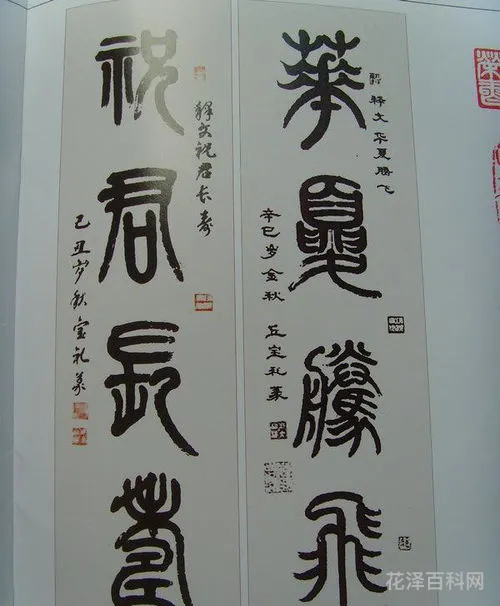 華夏騰飛
釋文华夏腾飞
辛巳岁金秋 丘宝礼篆
祝君長壽
释文祝君长寿
己丑岁秋宝礼篆
花泽百科网